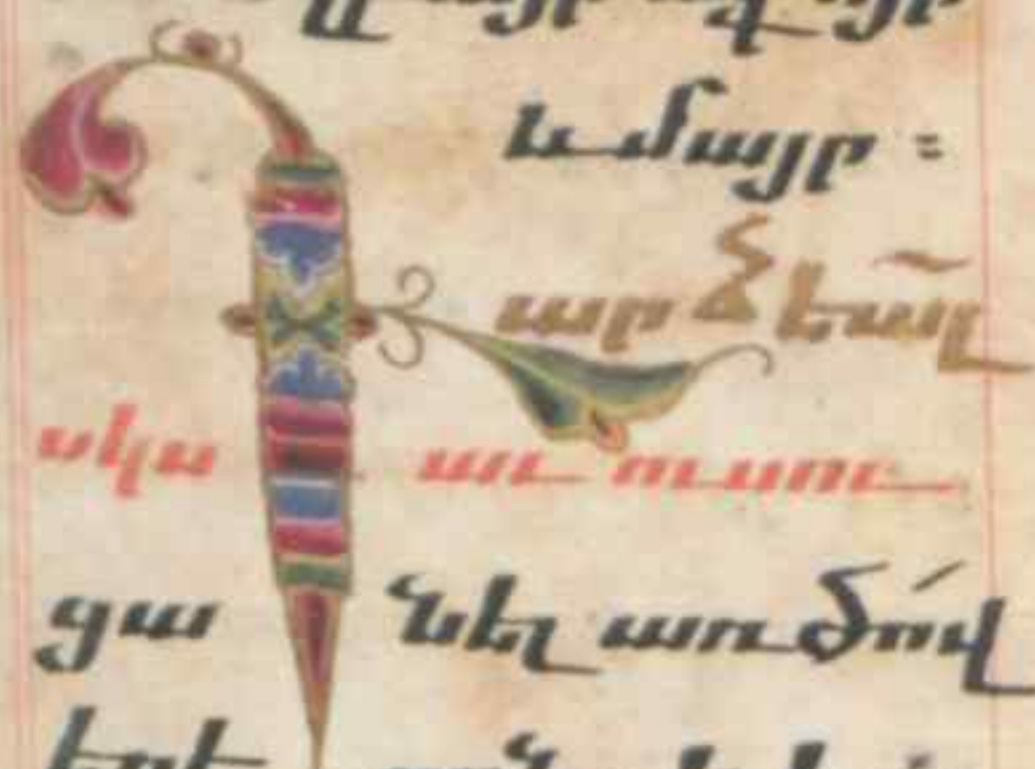 և մայր ։
Դարձեալ
սկսաւ ուսու
ցանել առ ծով